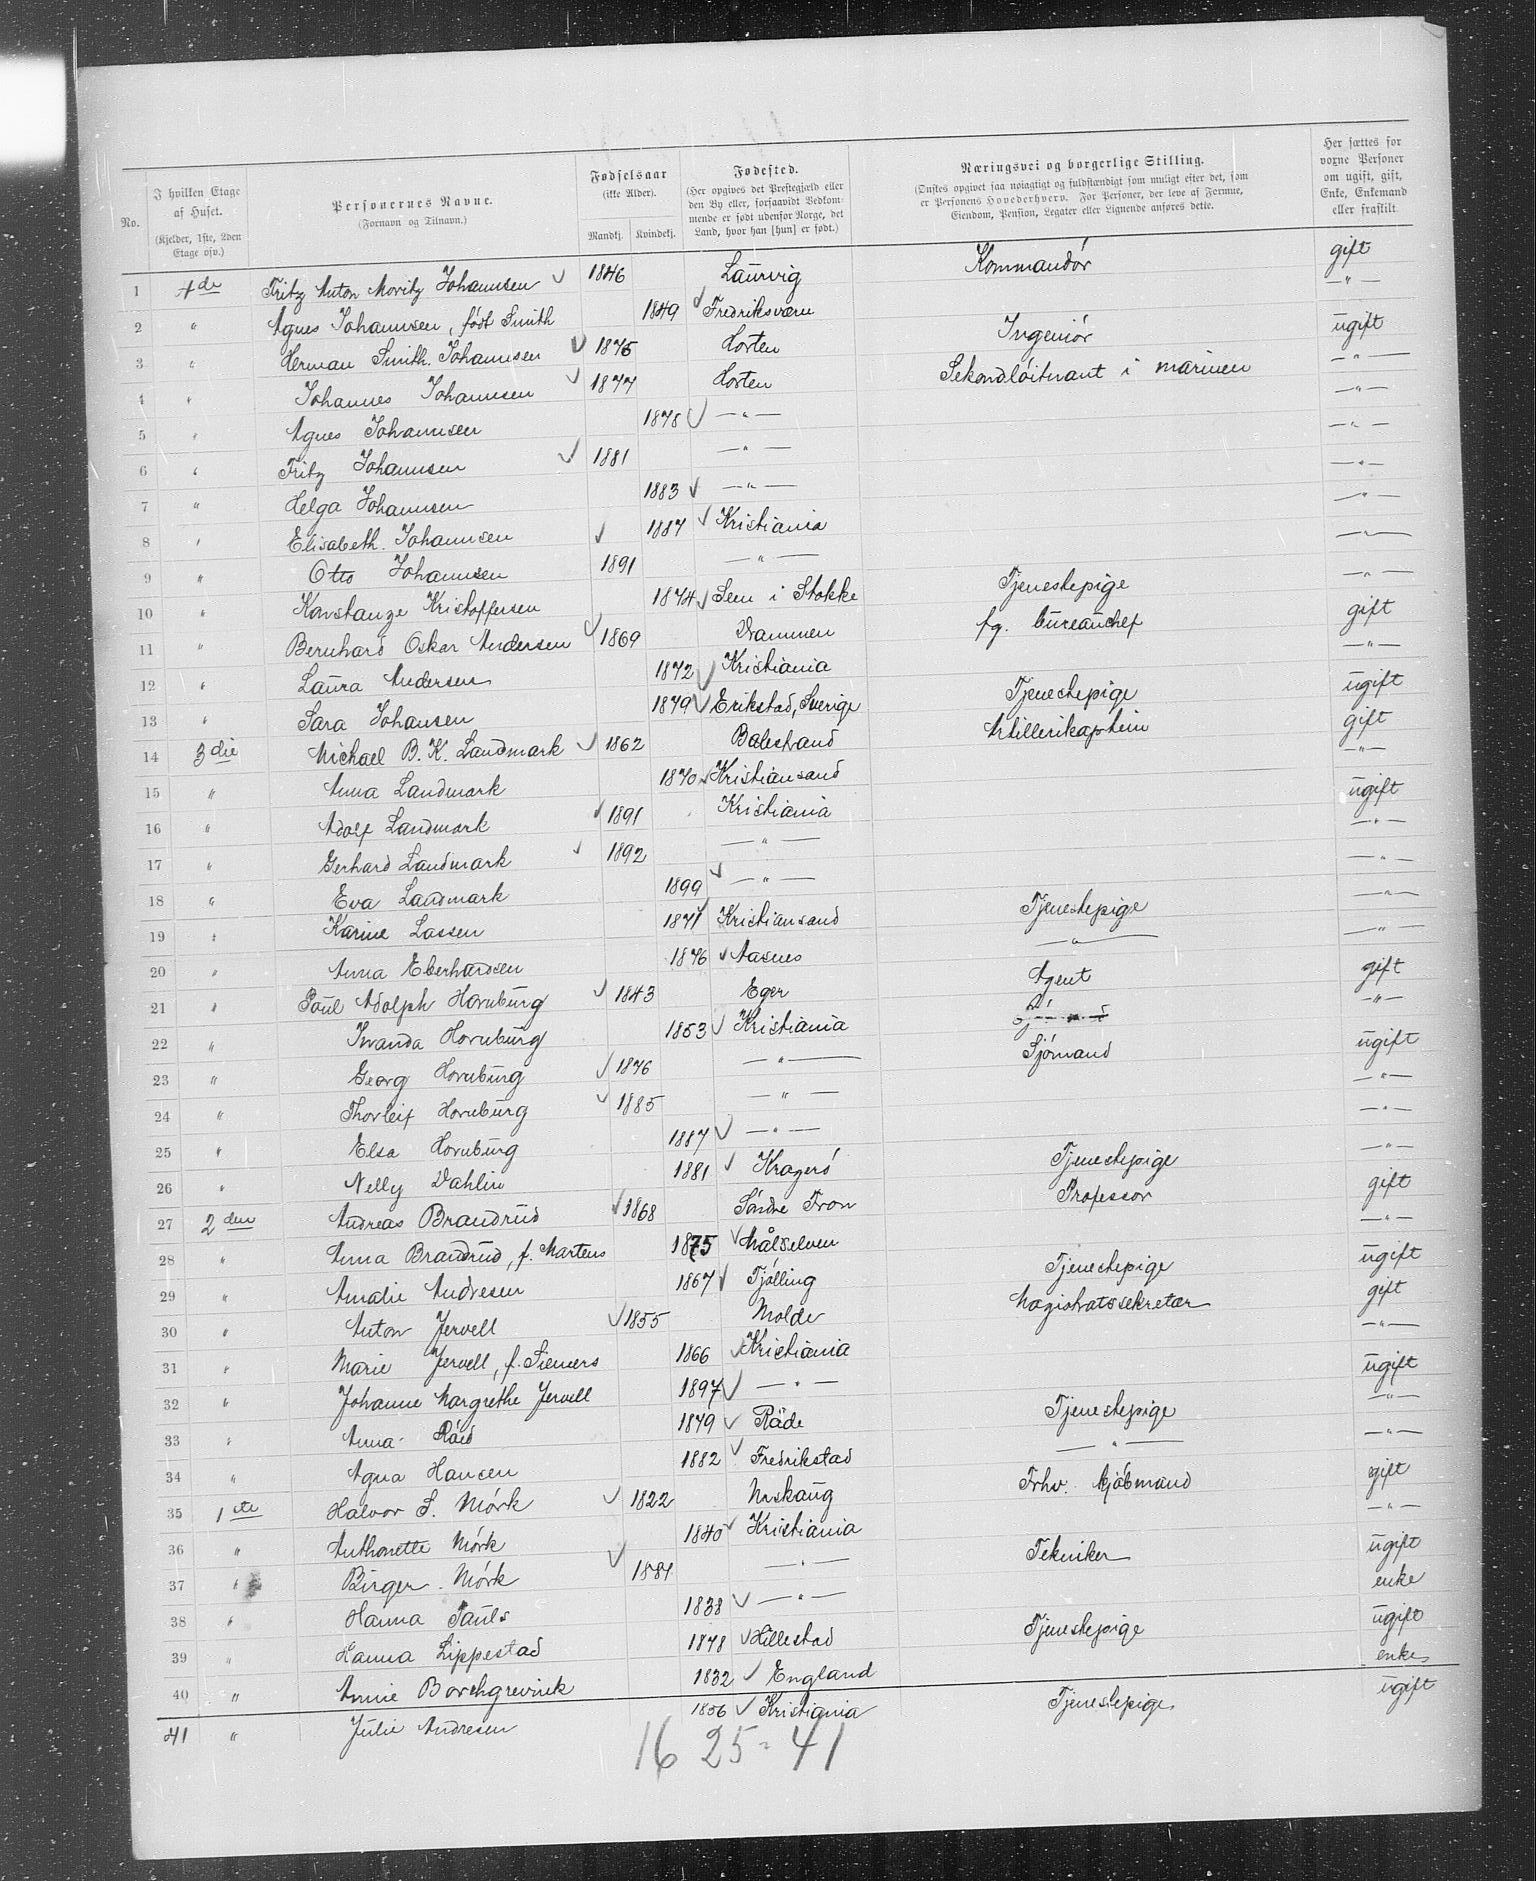 No.
I hvilken Etage af Huset. (Kjelder, 1ste, 2den Etage osv.)
Personernes Navne. (Fornavn og Tilnavn.)
Fødselsaar (ikke Alder). Mandkj. Kvindekj.
Fødested. (Her opgives det Prestegjeld eller den By eller, forsaavidt Vedkommende er født udenfor Norge, det Land, hvor han [hun] er født.)
Næringsvei og borgerlige Stilling. (Ønskes opgivet saa nøiagtigt og fuldstændigt som muligt efter det, som er Personens Hovederhverv. For Personer, der leve af Formue, Eiendom, Pension, Legater eller Lignende anføres dette.)
Her sættes for voxne Personer om ugift, gift, Enke, Enkemand eller fraskilt
1 4de Fritz Anton Moritz Johannsen 1846 Laurvig Kommandør gift
2 " Agnes Johannsen, født Smith 1849 Fredriksværn — " —
3 " Herman Smith Johannsen 1875 Horten Ingeniør ugift
4 " Johannes Johannsen 1877 Horten Sekondløitnant i marinen — " —
5 " Agnes Johannsen 1878 — " — — " —
6 " Fritz Johannsen 1881 — " — — " —
7 " Helga Johannsen 1883 — " — — " —
8 " Elisabeth Johannsen 1887 Kristiania — " —
9 " Otto Johannsen 1891 — " — — " —
10 " Konstanze Kristoffersen 1874 Sem i Stokke Tjenestepige — " —
11 " Bernhard Oskar Andersen 1869 Drammen fg. bureauchef gift
12 " Laura Andersen 1872 Kristiania — " —
13 " Sara Johansen 1879 Erikstad, Sverige Tjenestepige ugift
14 3die Michael B. K. Landmark 1862 Balestrand Artillerikaptein gift
15 " Anna Landmark 1870 Kristiansand — " —
16 " Adolf Landmark 1891 Kristiania ugift
17 " Gerhard Landmark 1892 — " — — " —
18 " Eva Landmark 1899 — " — — " —
19 " Karine Lassen 1871 Kristiansand Tjenestepige — " —
20 " Anna Eberhardsen 1876 Aasnes — " — — " —
21 " Poul Adolph Hornburg 1843 Eger Agent gift
22 " Kvanda Hornburg 1853 Kristiania — " —
23 " Georg Hornburg 1876 — " — Sjømand ugift
24 " Thorleif Hornburg 1885 — " — — " —
25 " Elsa Hornburg 1887 — " — — " —
26 " Nelly Dahlin 1881 Kragerø Tjenestepige — " —
27 2den Andreas Brandrud 1868 Søndre Fron Professor gift
28 " Anna Brandrud, f. Martens 1875 Målselven — " —
29 " Amalie Andresen 1867 Tjølling Tjenestepige ugift
30 " Anton Jervell 1855 Molde Magistratssekretær gift
31 " Marie Jervell, f. Siemers 1866 Kristiania — " —
32 " Johanne Margrethe Jervell 1897 — " — ugift
33 " Anna Råd 1879 Råde Tjenestepige — " —
34 " Agna Hansen 1882 Fredrikstad — " — — " —
35 1ste Halvor S. Mørk 1822 Urskaug Frhv. kjøbmand gift
36 " Anthonette Mørk 1840 Kristiania — " —
37 " Birger Mørk 1881 — " — Tekniker ugift
38 " Hanna Pauls 1838 — " — enke
39 " Hanna Lippestad 1878 Hillestad Tjenestepige ugift
40 " Annie Borchgrevink 1832 England enke
41 " Julie Andresen 1856 Kristiania Tjenestepige ugift
16 25 = 41